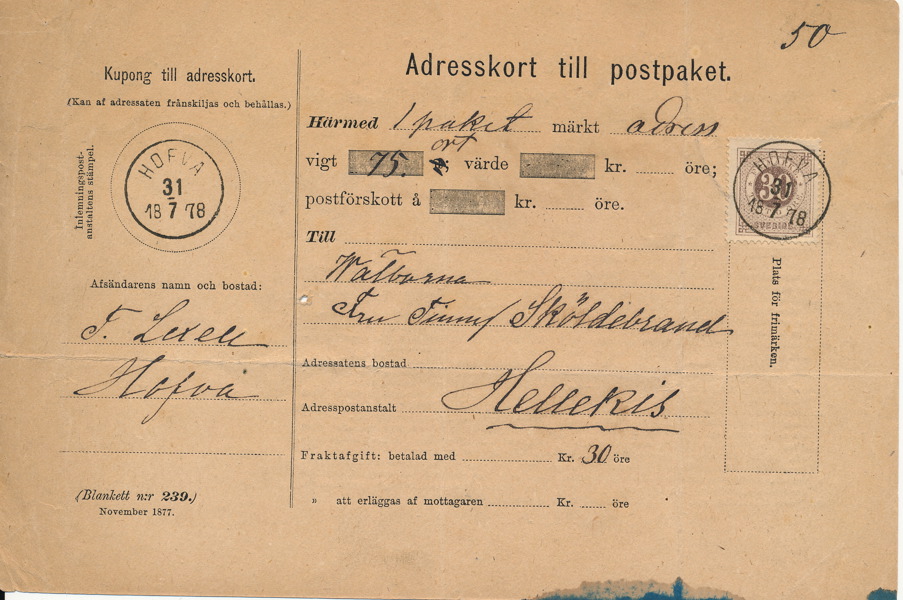 50
Kupong till adresskort.
(Kan af adressaten frånskiljas och behållas.)
Inlemningspost-
anstaltens stämpel.
HOFVA
31
18 7 78
Afsändarens namn och bostad:
Hofva
(Blankett n:r 239.)
November 1877.
Adresskort till postpaket.
Härmed 1 paket märkt adress
vigt 75. ort värde kr. öre;
postförskott å kr. öre.
Till
Wälborna
Fru Sköldebrand
Adressatens bostad
Adresspostanstalt Hellekis
Fraktafgift: betalad med Kr. 30 öre
» att erläggas af mottagaren Kr. öre
HOFVA
31
18 7 78
30
SVERIGE
Plats för frimärken.